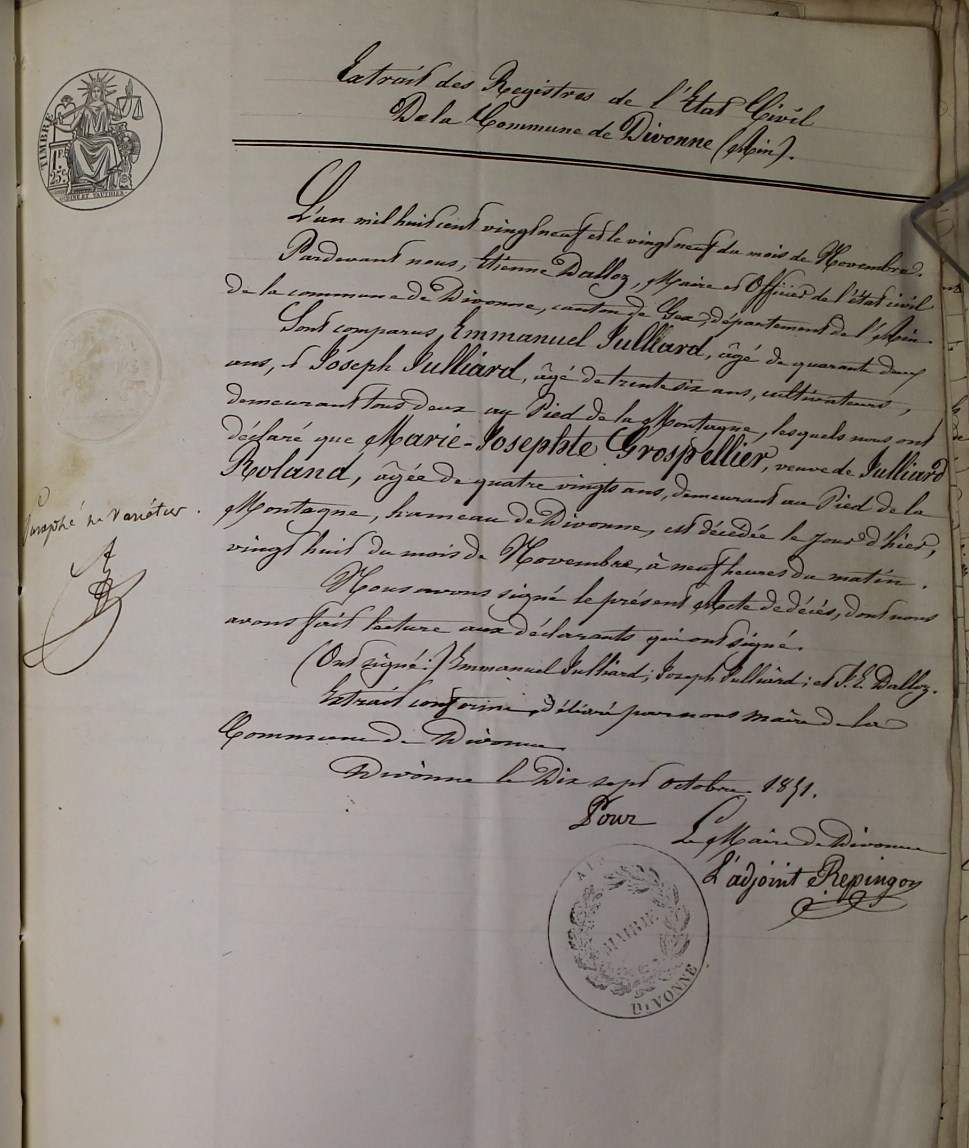 TIMBRE
1F.
25c
Extrait des Registres de l'Etat Civil
De la Commune de Divonne (Ain).
L'an mil huit cent vingt neuf et le vingt neuf du mois de Novembre.
Pardevant nous, Etienne Dalloz, Maire et Officier de l'état civil
de la commune de Divonne, canton de Gex, département de l'Ain
Sont comparus, Emmanuel Julliard, âgé de quarante deux
ans, et Joseph Julliard, âgé de trente six ans, cultivateurs,
demeurant tous deux au Pied de la Montagne, lesquels nous ont
déclaré que Marie-Josephte Grospellier, veuve de Julliard
Roland, âgée de quatre vingts ans, demeurant au Pied de la
Montagne, hameau de Divonne, est décédée le jour d'hier,
vingt huit du mois de Novembre, à neuf heures du matin.
Nous avons signé le présent Acte de décès, dont nous
avons fait lecture aux déclarants qui ont signé.
(Ont signé:) Emmanuel Julliard; Joseph Julliard; et J. E. Dalloz.
Extrait conforme, délivré par nous maire de la
Commune de Divonne
Divonne le Dix sept octobre 1851.
Pour Le Maire de Divonne
L'adjoint Repingon
Paraphé ne varietur.
AIN
MAIRIE
DIVONNE